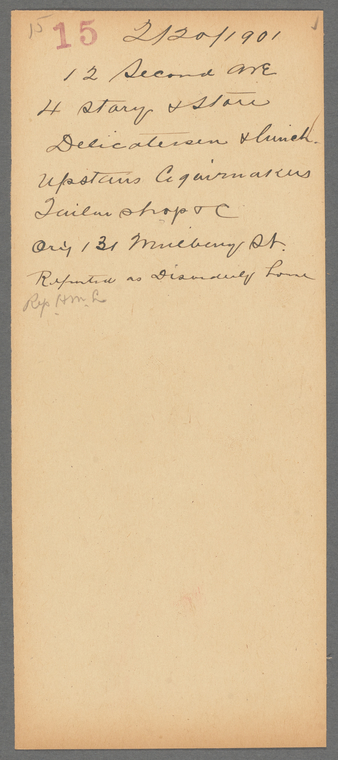 15 15 2/20/1901
12 Second Ave
4 story & Store
Delicatessen & lunch.
Upstairs Cigarmakers
Tailor shop & C
Orig 131 Mulberry St.
Reported as Disorderly house
Rep.